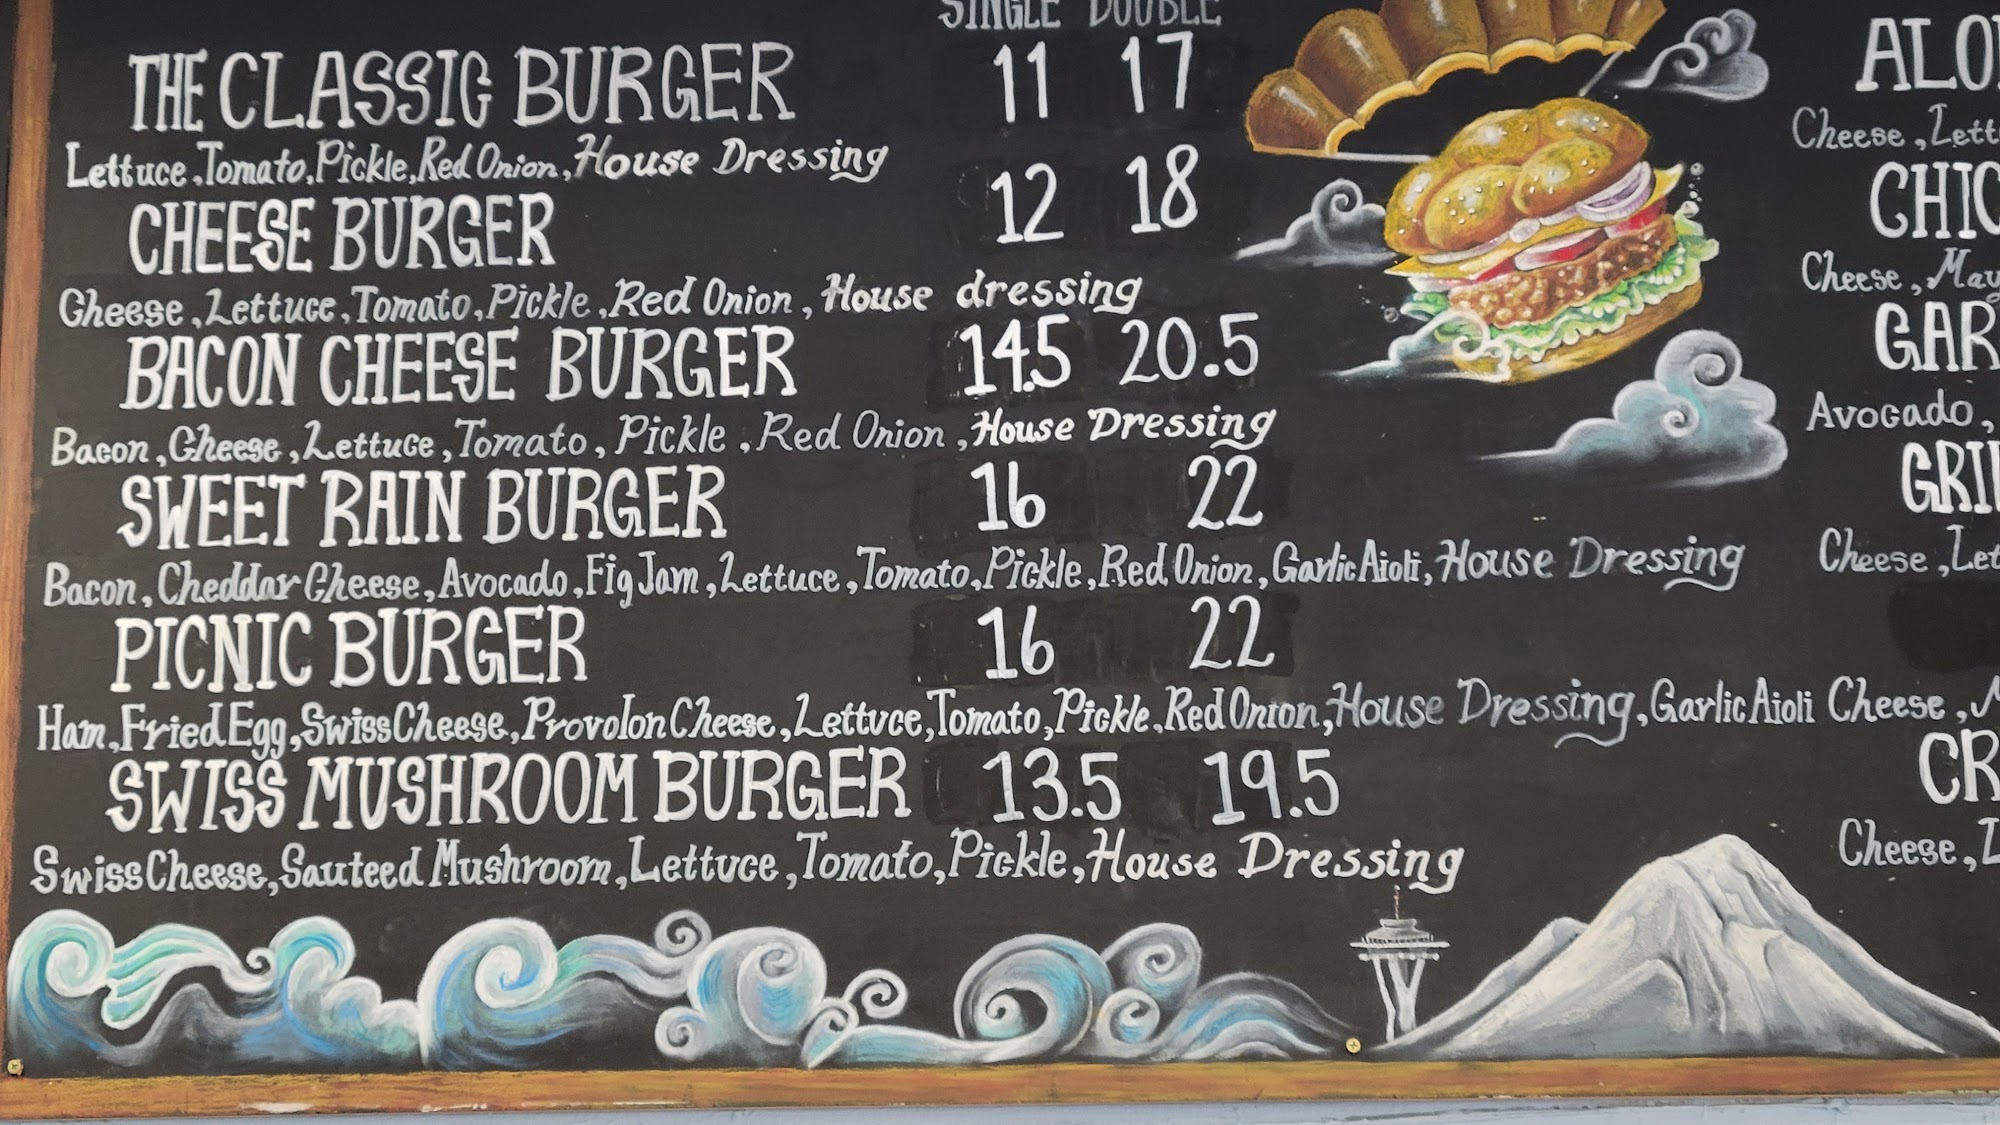 SINGLE DOUBLE
THE CLASSIC BURGER 11 17
Lettuce, Tomato, Pickle, Red Onion, House Dressing
CHEESE BURGER 12 18
Cheese, Lettuce, Tomato, Pickle, Red Onion, House dressing
BACON CHEESE BURGER 14.5 20.5
Bacon, Cheese, Lettuce, Tomato, Pickle, Red Onion, House Dressing
SWEET RAIN BURGER 16 22
Bacon, Cheddar Cheese, Avocado, Fig Jam, Lettuce, Tomato, Pickle, Red Onion, Garlic Aioli, House Dressing
PICNIC BURGER 16 22
Ham, Fried Egg, Swiss Cheese, Provolon Cheese, Lettuce, Tomato, Pickle, Red Onion, House Dressing, Garlic Aioli
SWISS MUSHROOM BURGER 13.5 19.5
Swiss Cheese, Sauteed Mushroom, Lettuce, Tomato, Pickle, House Dressing
Cheese,
Cheese,
Avocado,
Cheese,
Cheese,
Cheese,